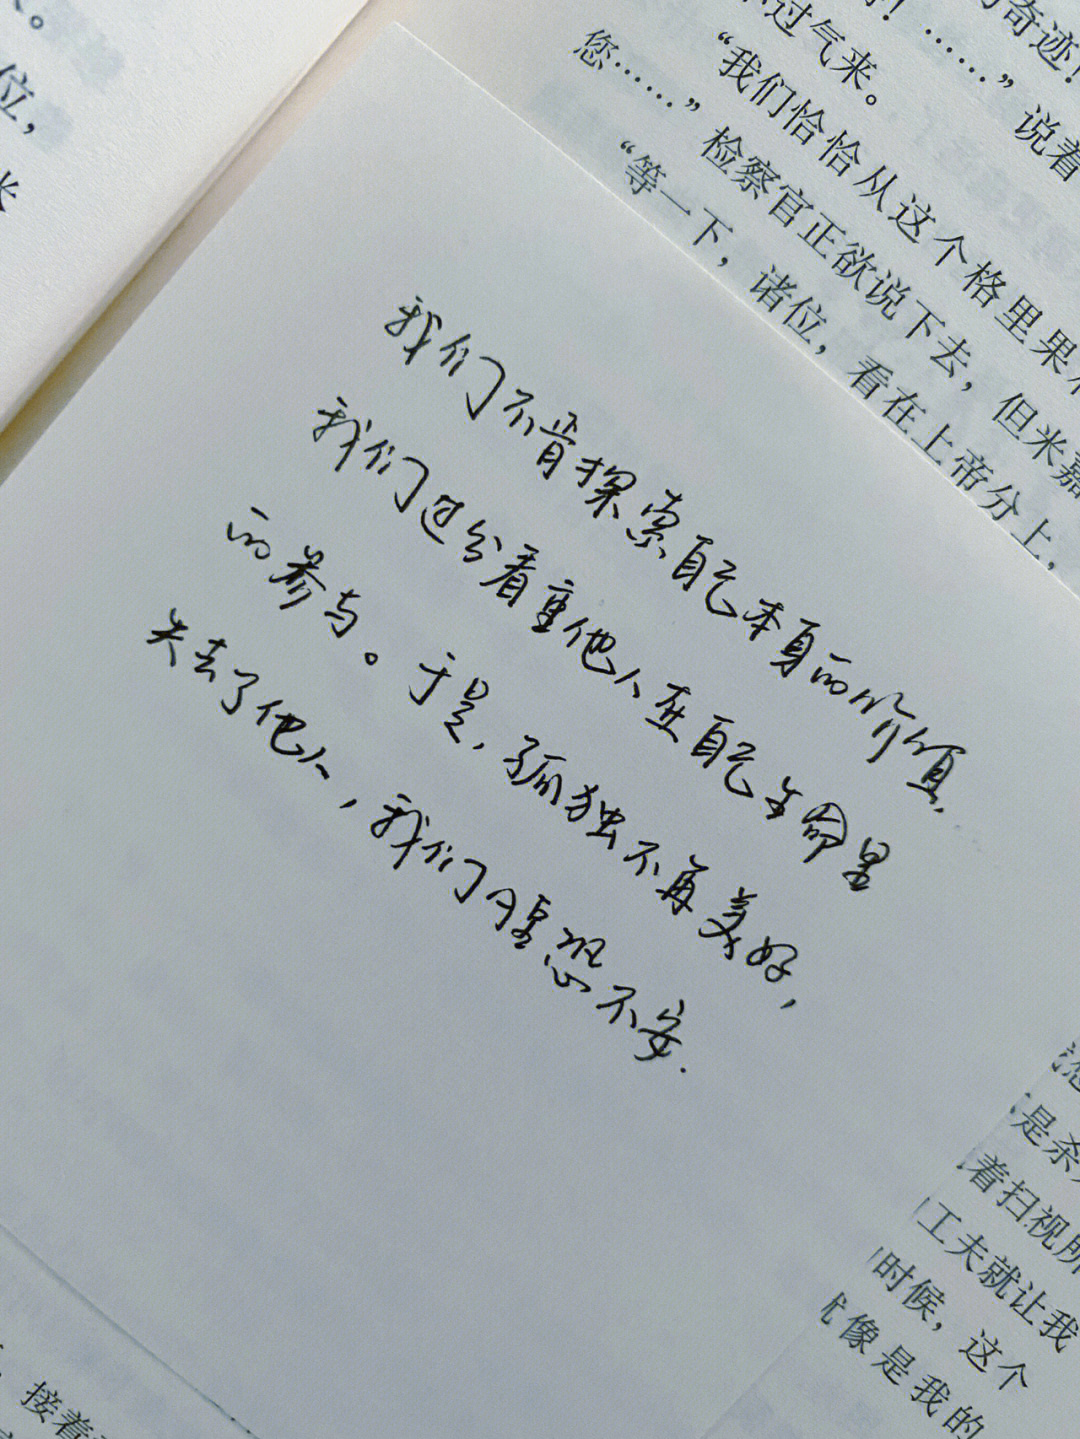 我们不肯探索自己本身的价值,
我们过分看重他人在自己生命里
的参与。于是,孤独不再美好,
失去了他人,我们惶恐不安.
奇迹!
！……”说着
过气来。
“我们恰恰从这个格里果
您……”检察官正欲说下去，但米嘉
“等一下，诸位，看在上帝分上，
位，
是杀
着扫视所
工夫就让我
时候，这个
像是我的
接着